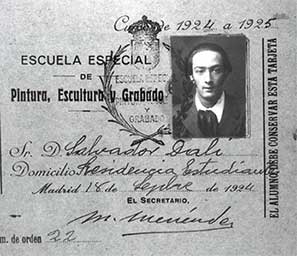 Curso de 1924 a 1925
ESCUELA ESPECIAL
DE
Pintura, Escultura y Grabado
ESCUELA ESPECIAL
Y
GRABADO
Sr. D. Salvador Dalí
Domicilio Residencia Estudiantes
Madrid 18 de Sepbre de 1924
EL SECRETARIO,
M. Menéndez
m. de orden 22
EL ALUMNO DEBE CONSERVAR ESTA TARJETA